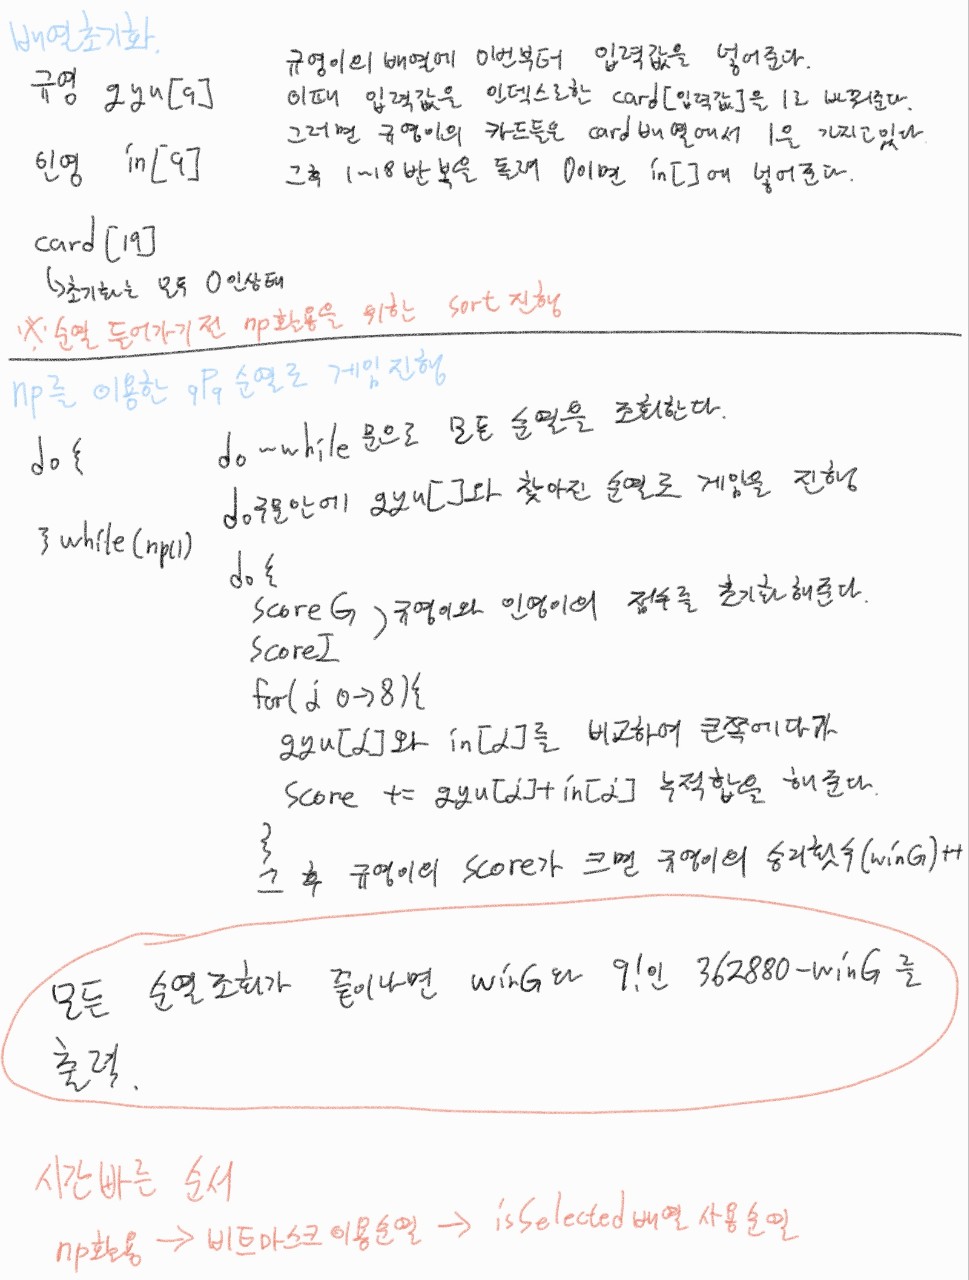 배열초기화.
규영 gyu[9]
규영이의 배열에 0번부터 입력값을 넣어준다.
이때 입력값을 인덱스로한 card[입력값]을 1로 바꿔준다.
그러면 규영이의 카드들은 card배열에서 1을 가지고있다
인영 in[9]
그후 1~18 반복을 돌려 0이면 in[]에 넣어준다.
card[19]
↳초기화는 모두 0인상태
※ 순열 들어가기전 np활용을 위한 sort 진행
np를 이용한 9P9 순열로 게임진행
do {
} while(np())
do~while 문으로 모든 순열을 조회한다.
do구문안에 gyu[]와 찾아진 순열로 게임을 진행
do {
scoreG ) 규영이와 인영이의 점수를 초기화해준다.
scoreI
for(i 0→8){
gyu[i]와 in[i]를 비교하여 큰쪽에다가
score += gyu[i]+in[i] 누적합을 해준다.
}
그 후 규영이의 score가 크면 규영이의 승리횟수(winG)++
모든 순열조회가 끝이나면 winG와 9!인 362880-winG를
출력.
시간빠른 순서
np활용 → 비트마스크이용순열 → isSelected배열 사용순열